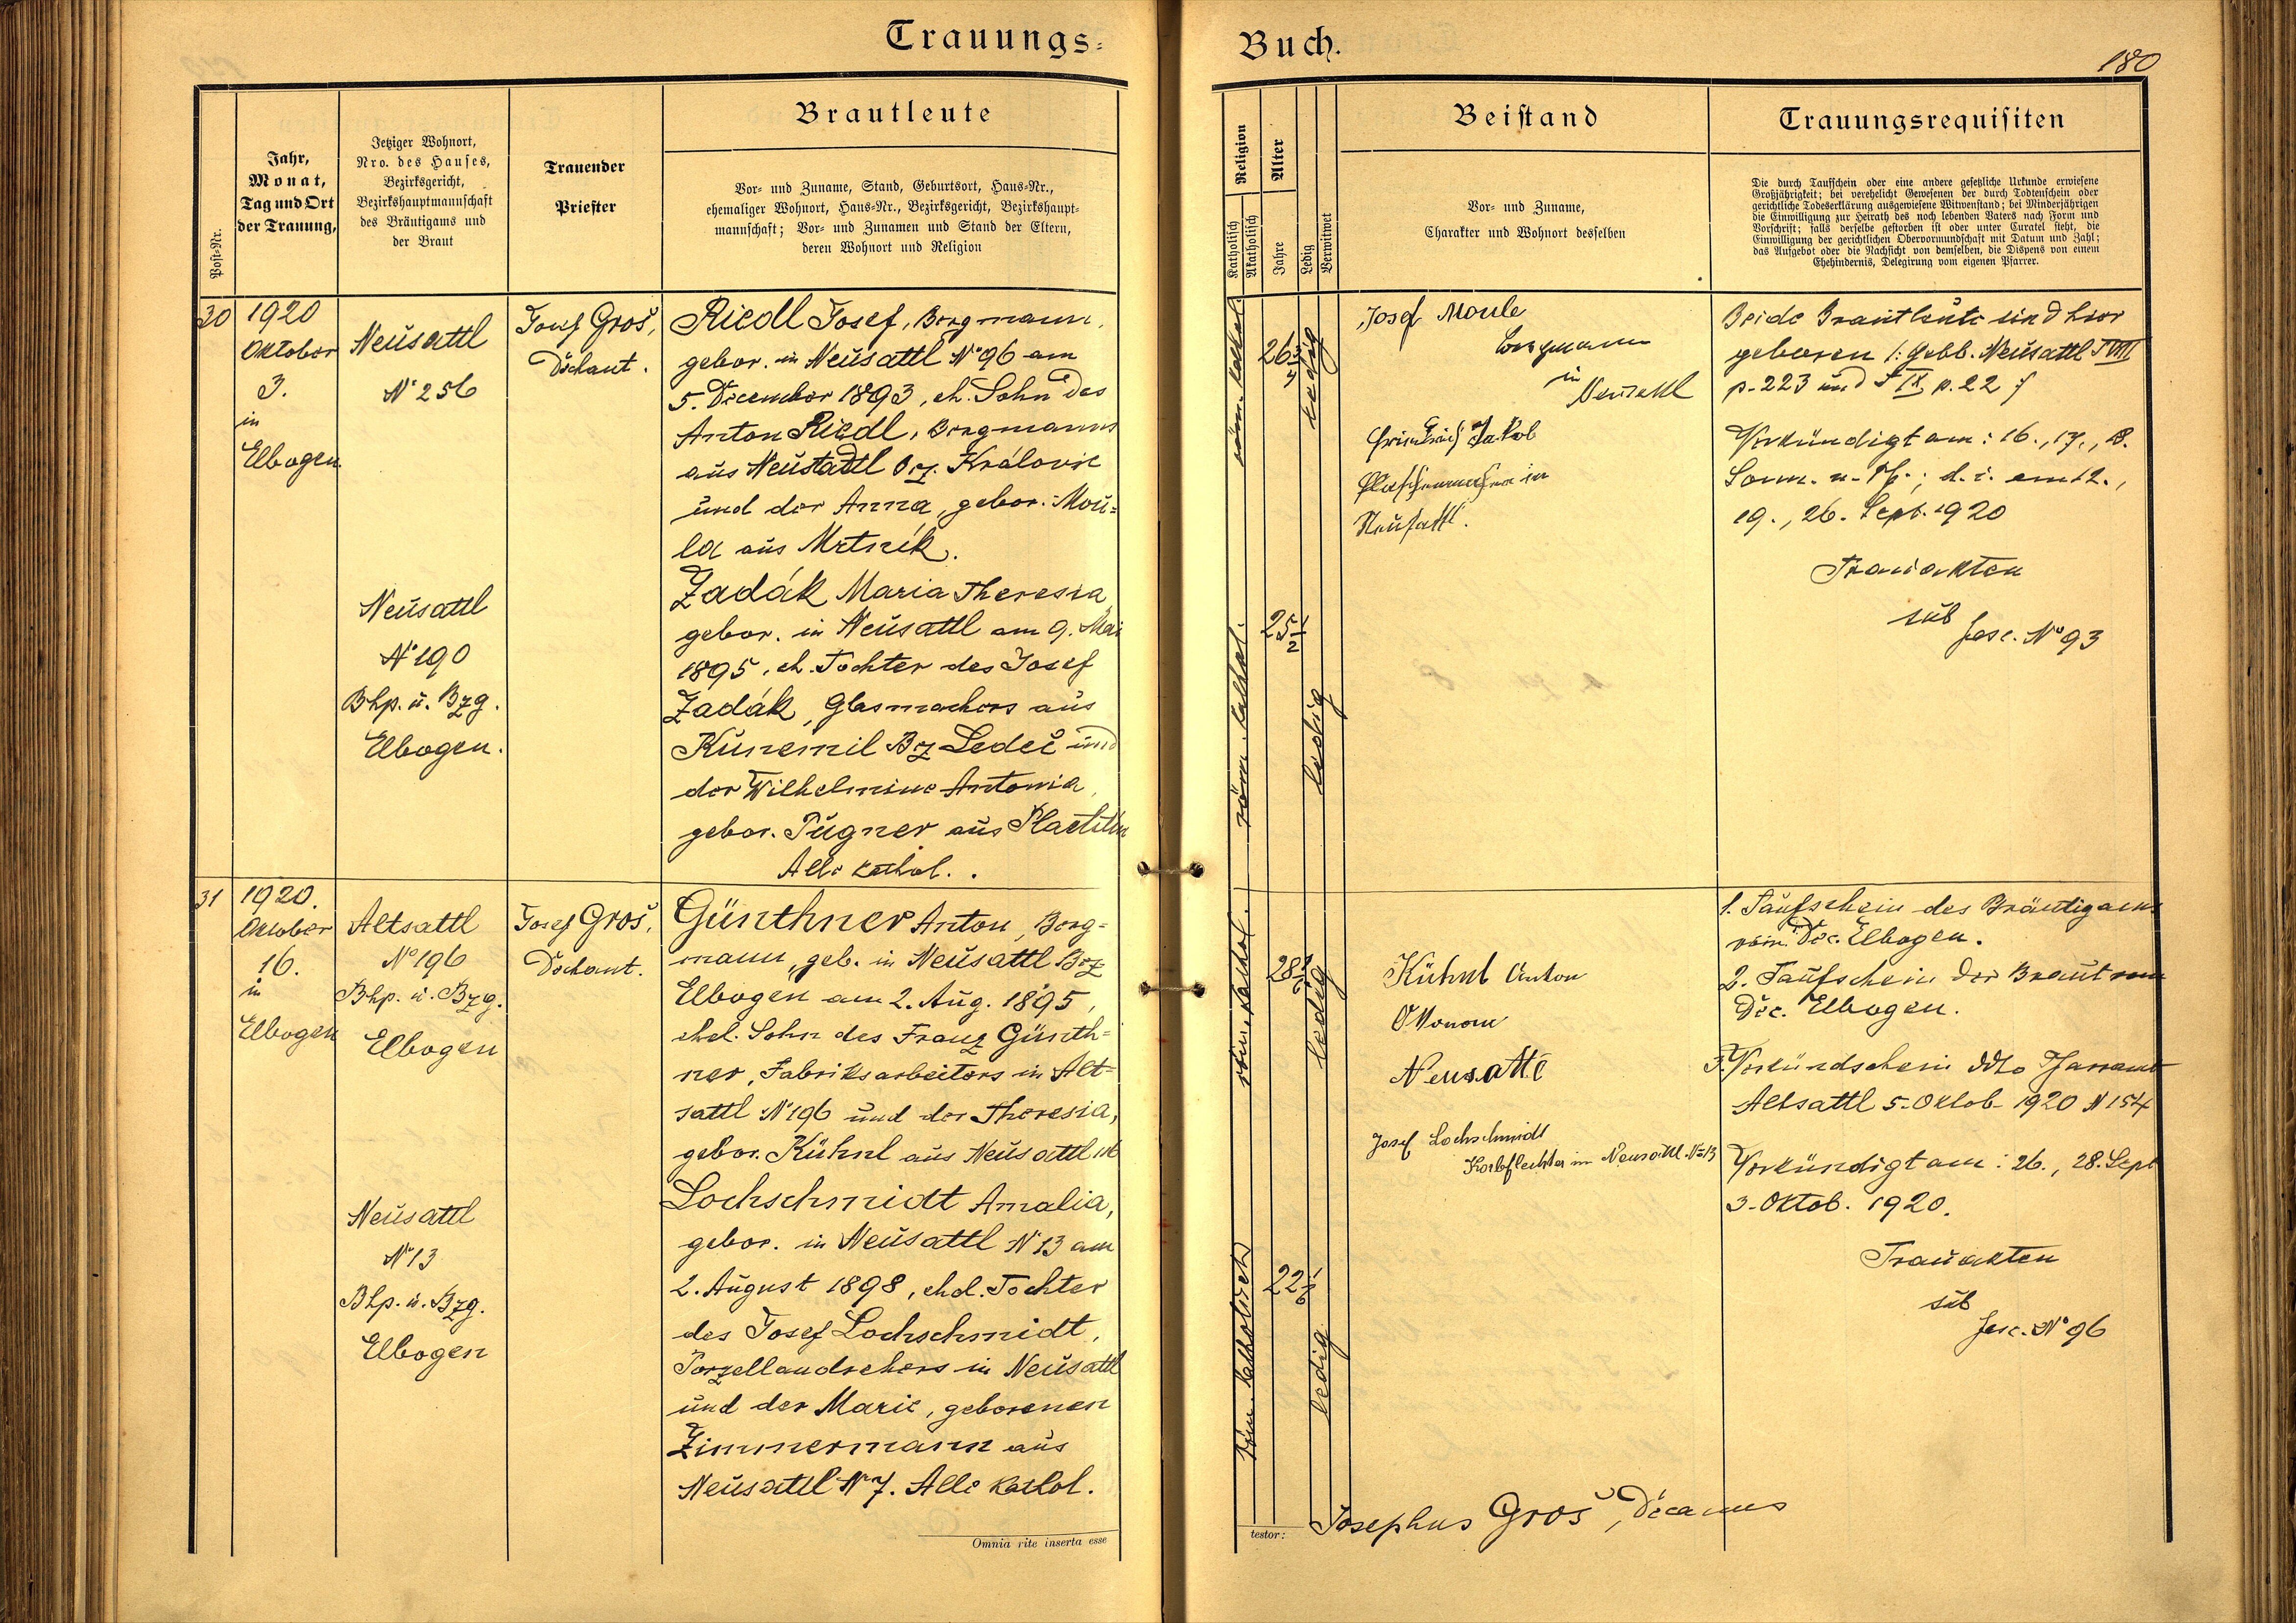 Trauungs-
Buch.
180
Post-Nr.
Jahr,
Monat,
Tag und Ort
der Trauung,
Jetziger Wohnort,
Nro. des Hauses,
Bezirksgericht,
Bezirkshauptmannschaft
des Bräutigams und
der Braut
Trauender
Priester
Brautleute
Vor- und Zuname, Stand, Geburtsort, Haus-Nr.,
ehemaliger Wohnort, Haus-Nr., Bezirksgericht, Bezirkshaupt-
mannschaft; Vor- und Zunamen und Stand der Eltern,
deren Wohnort und Religion
Religion
Katholisch
Akatholisch
Alter
Jahre
Ledig
Verwitwet
Beistand
Vor- und Zuname,
Charakter und Wohnort desselben
Trauungsrequisiten
Die durch Taufschein oder eine andere gesetzliche Urkunde erwiesene
Großjährigkeit; bei verehelicht Gewesenen der durch Todtenschein oder
gerichtliche Todeserklärung ausgewiesene Witwenstand; bei Minderjährigen
die Einwilligung zur Heirath des noch lebenden Vaters nach Form und
Vorschrift; falls derselbe gestorben ist oder unter Curatel steht, die
Einwilligung der gerichtlichen Obervormundschaft mit Datum und Zahl;
das Aufgebot oder die Nachsicht von demselben, die Dispens von einem
Ehehindernis, Delegirung vom eigenen Pfarrer.
30
1920
Oktober
3.
in
Elbogen
Neusattl
N° 256
Josef Groš,
Dechant.
Riedl Josef, Bergmann,
gebor. in Neusattl N° 96 am
5. December 1893, eh. Sohn des
Anton Riedl, Bergmanns
aus Neustadtl Bez. Královic
und der Anna, gebor. Mou-
la aus Mrtník.
Neusattl
N° 190
Bhp. u. Bzg.
Elbogen.
Zadák Maria Theresia,
gebor. in Neusattl am 9. Mai
1895, eh. Tochter des Josef
Zadák, Glasmachers aus
Kunemil Bz Ledeč und
der Wilhelmine Antonia,
gebor. Pugner aus
Alle kathol.
röm. kathol.
26
ledig
röm. kathol.
25 1/2
ledig
Josef Moule
Bergmann
in
Neusattl
Friedrich Jakob
Flaschenmacher in
Neusattl.
Beide Brautleute sind hier
geboren /: Gebb. Neusattl T VIII
p. 223 und T IX p. 22
Verkündigt am: 16., 17., 18.
Sonn. n. Pf.; d. i. am 12.,
19., 26. Sept. 1920
Trauakten
sub
fasc. N° 93
31
1920.
Oktober
16.
in
Elbogen
Altsattl
N° 196
Bhp. u. Bzg.
Elbogen
Josef Groš,
Dechant.
Günthner Anton, Berg-
mann, geb. in Neusattl Bez
Elbogen am 2. Aug. 1895,
ehel. Sohn des Franz Günth-
ner, Fabriksarbeiters in Alt-
sattl N° 196 und der Theresia,
gebor. Kühnl aus Neusattl
Neusattl
N° 13
Bhp. u. Bzg.
Elbogen
Lochschmidt Amalia,
gebor. in Neusattl N° 13 am
2. August 1898, ehel. Tochter
des Josef Lochschmidt,
Porzellandrehers in Neusattl
und der Marie, geborenen
Zimmermann aus
Neusattl N° 7. Alle kathol.
röm. kathol.
28
ledig
röm. katholisch
22 1/6
ledig
Kühnl Anton
Ökonom
Neusattl
Josef Lochschmidt
Korbflechter in Neusattl N=13
1. Taufschein des Bräutigams
vom Dec. Elbogen.
2. Taufschein der Braut vom
Dec. Elbogen.
3. Verkündschein ddto Pfarramt
Altsattl 5. Oktob. 1920 N 154
Verkündigt am: 26., 28. Sept
3. Oktob. 1920.
Trauakten
sub
fasc. N° 96
Omnia rite inserta esse
testor:
Josephus Groš, Decanus